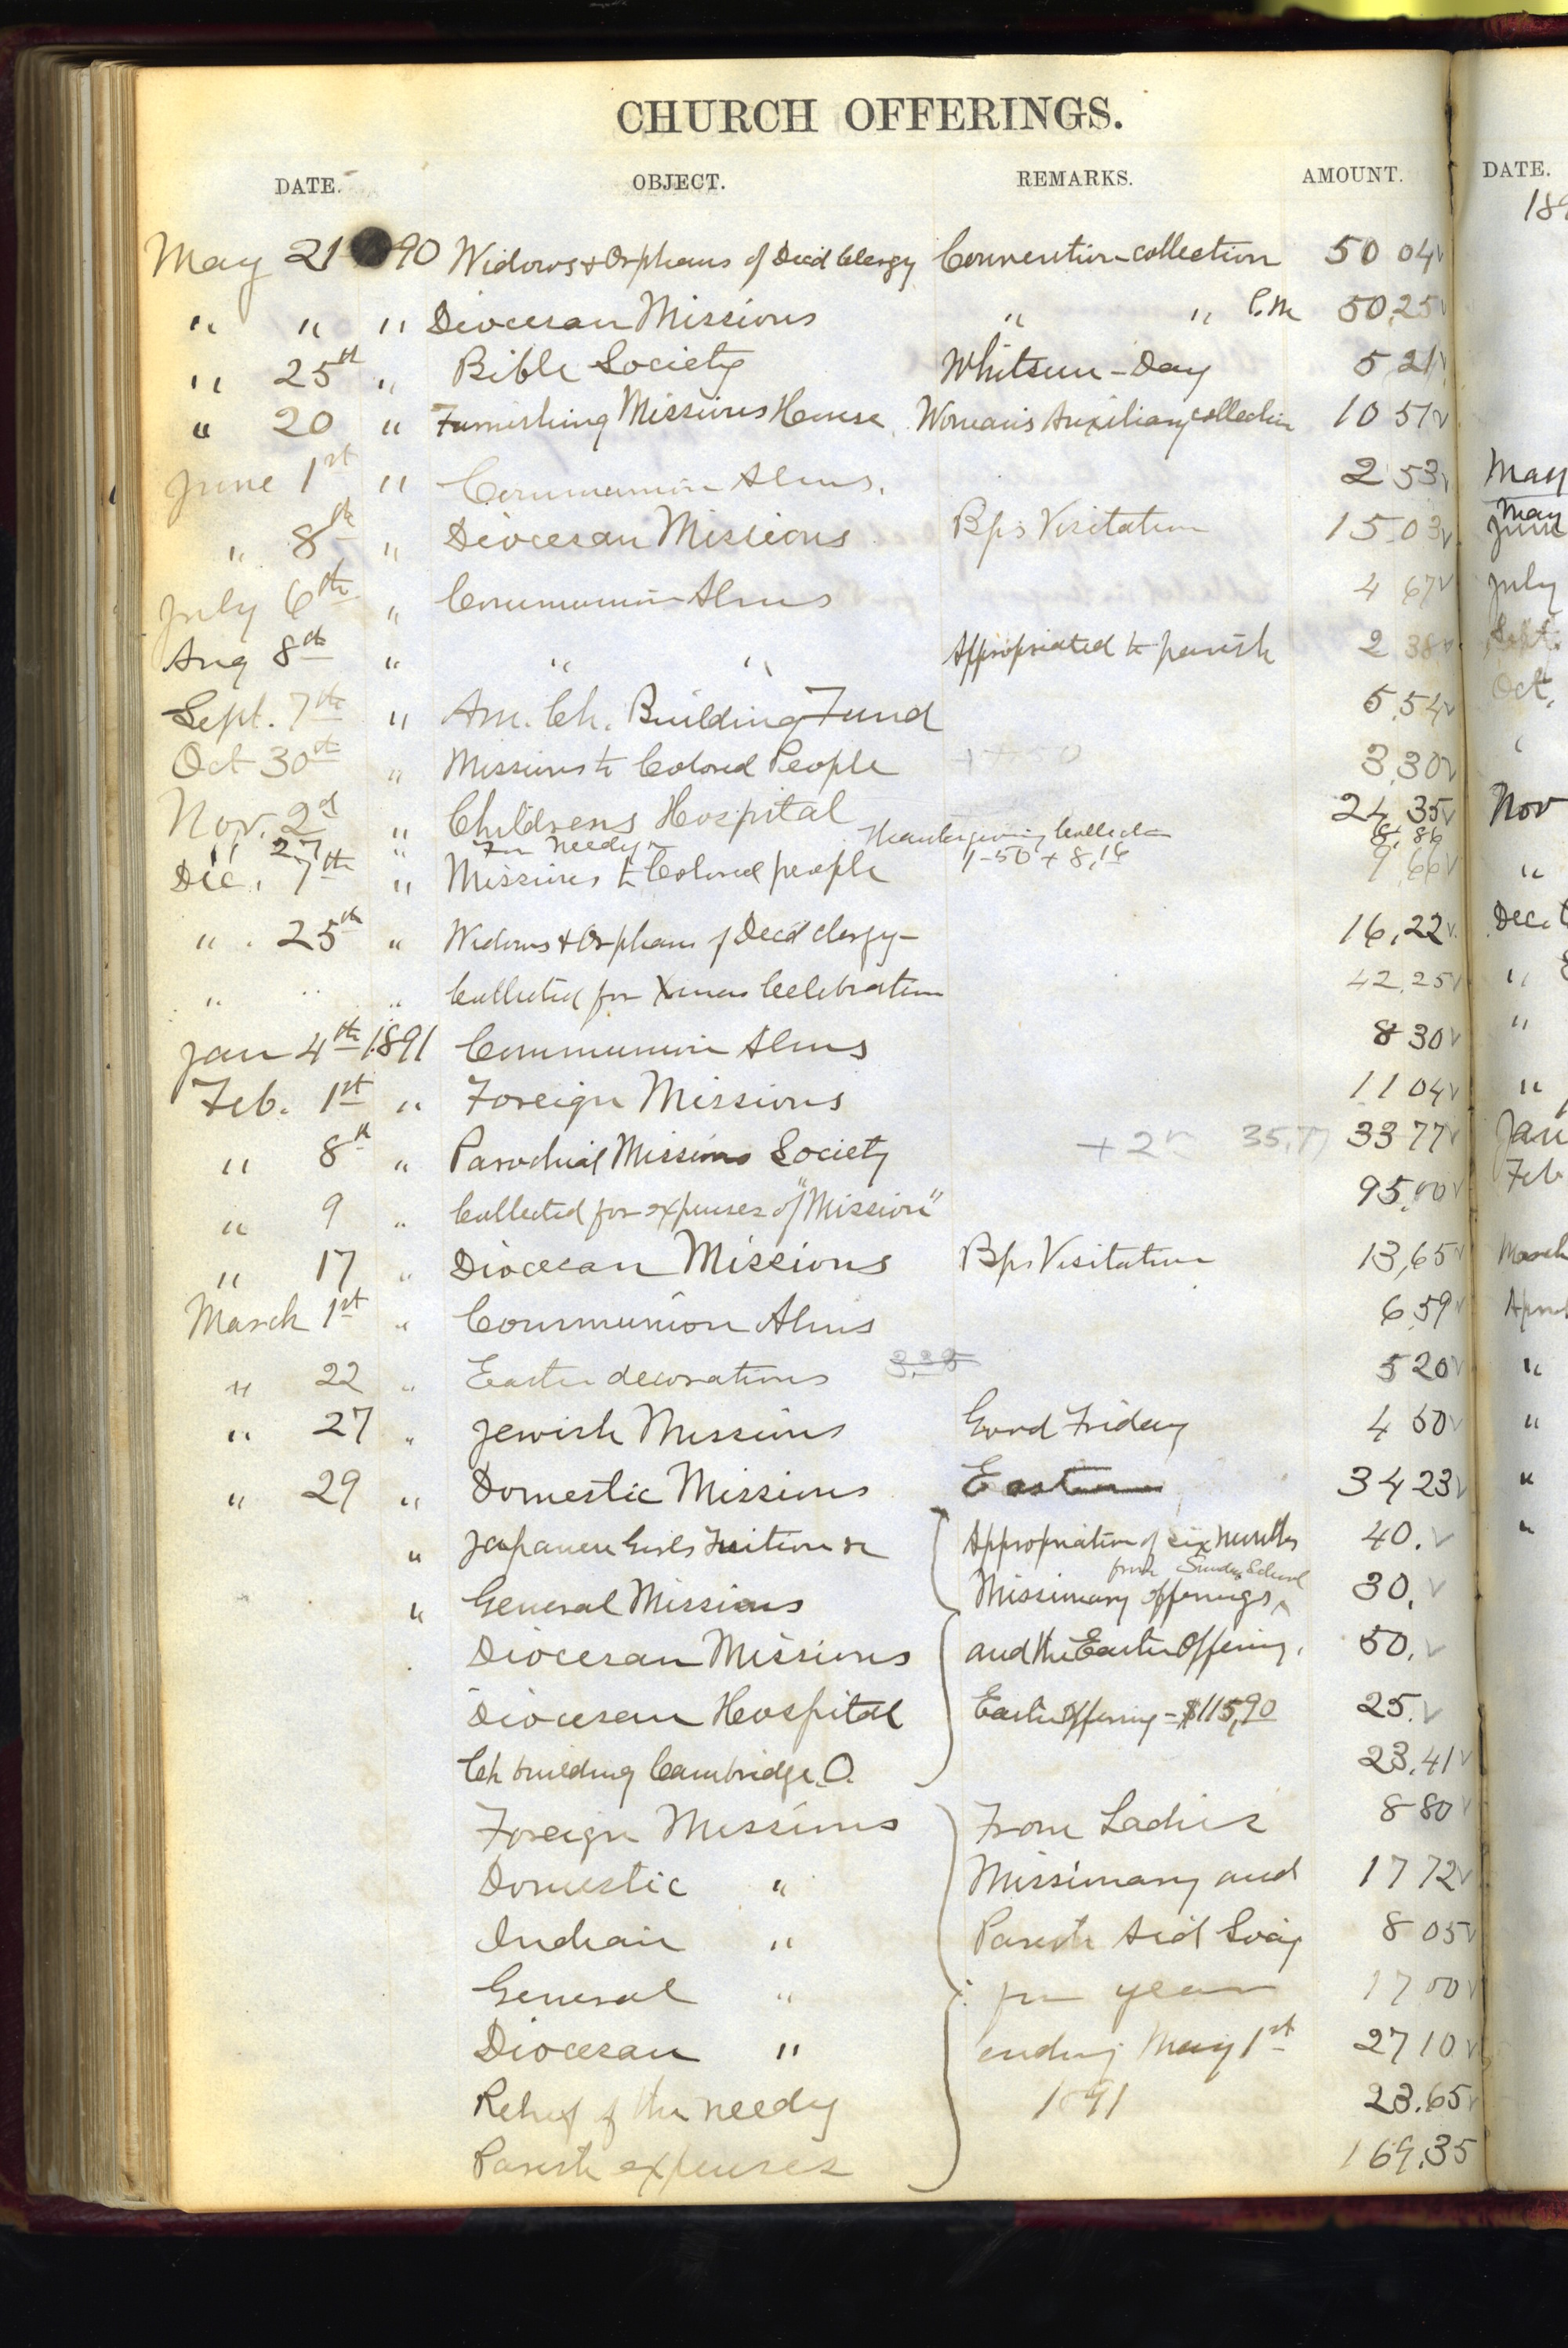 CHURCH OFFERINGS.
DATE. OBJECT. REMARKS. AMOUNT. DATE.
May 21 90 Widows & Orphans of Decd Clergy Convention collection 50 04
" " " Diocesan Missions " " P.M 50,25
" 25th " Bible Society Whitsun-Day 5 21
" 20 " Furnishing Missions House Woman's Auxiliary collection 10 51
June 1st " Communion Alms. 2 53 May
" 8th " Diocesan Missions Bp's Visitation 15.03 May June
July 6th " Communion Alms 4 67 July
Aug 8th " " " Appropriated to parish 2 38 Sept.
Sept. 7th " Am. Ch. Building Fund 5.54 Oct.
Oct 30th " Missions to Colored People 3,30
Nov. 2d " Childrens Hospital 24 35 Nov
" 27 " For Needy Thanksgiving Collection 8,86
Dec. 7th " Missions to Colored people 1-50 + 8,16 9,66 "
" 25th " Widows & Orphans of Decd clergy- 16,22 Dec.
" " " Collected for Xmas Celebration 42,25 "
Jan 4th 1891 Communion Alms 8 30 "
Feb. 1st " Foreign Missions 11 04 "
" 8th " Parochial Missions Society + 2 35,77 33 77 Jan
" 9 " Collected for expenses of "Mission" 95,00 Feb
" 17 " Diocesan Missions Bp's Visitation 13,65 March
March 1st " Communion Alms 6,59 April
" 22 " Easter decorations 3.25 5 20 "
" 27 " Jewish Missions Good Friday 4 50 "
" 29 " Domestic Missions Easter 34 23 "
" Japanese Girls Tuition Appropriation of six months 40. "
from Sunday School
" General Missions Missionary offerings 30.
Diocesan Missions and the Easter Offering. 50.
Diocesan Hospital Easter Offering = $115,90 25.
Ch building Cambridge. O. 23.41
Foreign Missions From Ladies 8 80
Domestic " Missionary and 17 72
Indian " Parish Aid Socty 8 05
General " for year 17 00
Diocesan " ending May 1st 27 10
Relief of the needy 1891 23.65
Parish expenses 169.35